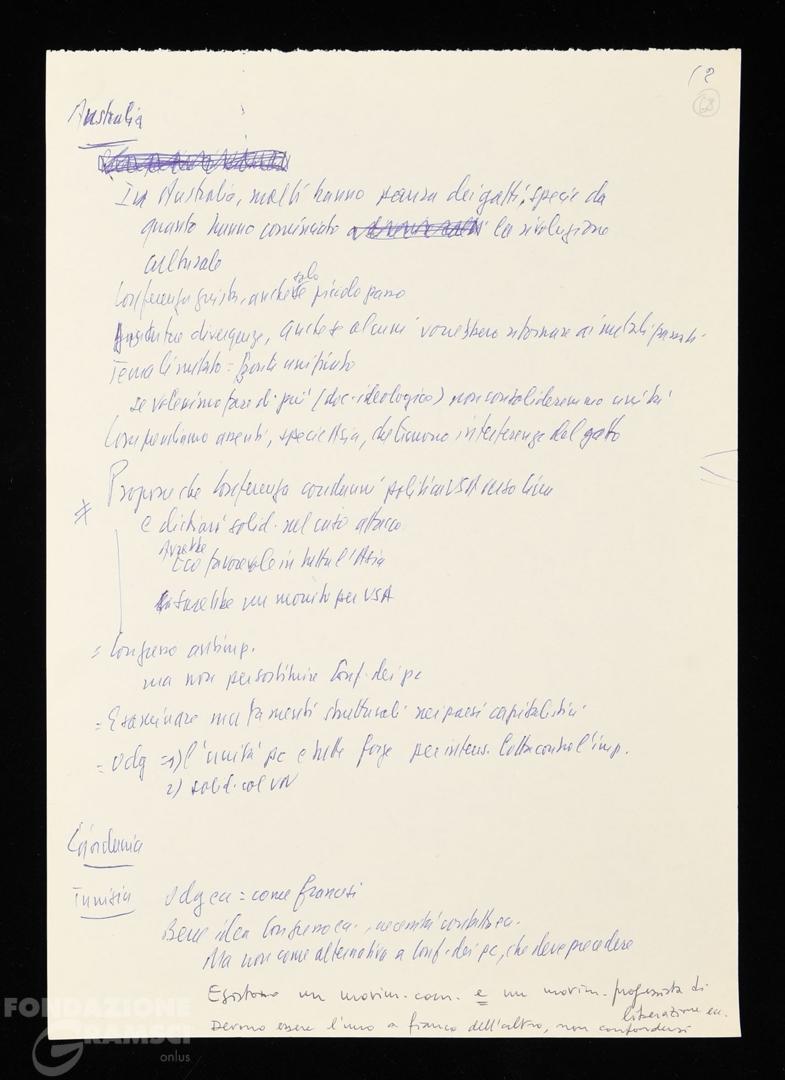 12
Australia
In Australia, molti hanno paura dei gatti, specie da
quanto hanno cominciato la rivoluzione
culturale
solo
Conferenza giusta, anche se piccolo passo
divergenze, anche se alcuni vorrebbero ritornare ai metodi passati
Tema limitato = fronte unificato
se volessimo fare di più (doc. ideologico) non consolideremmo unità
Comprendiamo assenti, specie Asia, che temono interferenze del gatto
Propone che Conferenza condanni politica USA verso Cina
e dichiari solid. nel caso attacco
Avrebbe
eco favorevole in tutta l'Asia
sarebbe un monito per USA
= Congresso antimp.
ma non per sostituire Conf. dei pc
= Esaminare mutamenti strutturali nei paesi capitalistici
= Odg = 1) l'unità pc e tutte forze per intens. lotta contro l'imp.
2) solid. col VN
Giordania
Tunisia Odg ca = come francesi
Bene idea Congresso
Ma non come alternativa a Conf. dei pc, che deve precedere
Esistono un movim. com. e un movim. progressista di
liberazione
Devono essere l'uno a fianco dell'altro, non confondersi
FONDAZIONE
GRAMSCI
onlus